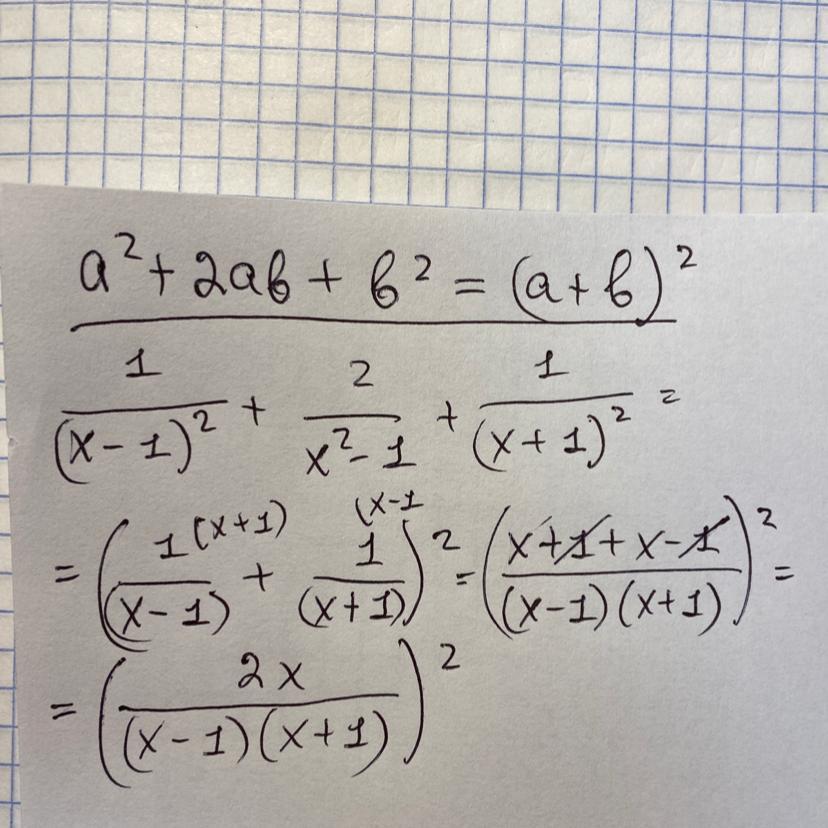 a² + 2aв + в² = (a + в)²
1/(x - 1)² + 2/(x² - 1) + 1/(x + 1)² =
= (1^(x+1)/(x - 1) + 1^(x-1/(x + 1))² = ((x + 1 + x - 1)/((x - 1)(x + 1)))² =
= (2x/((x - 1)(x + 1)))²